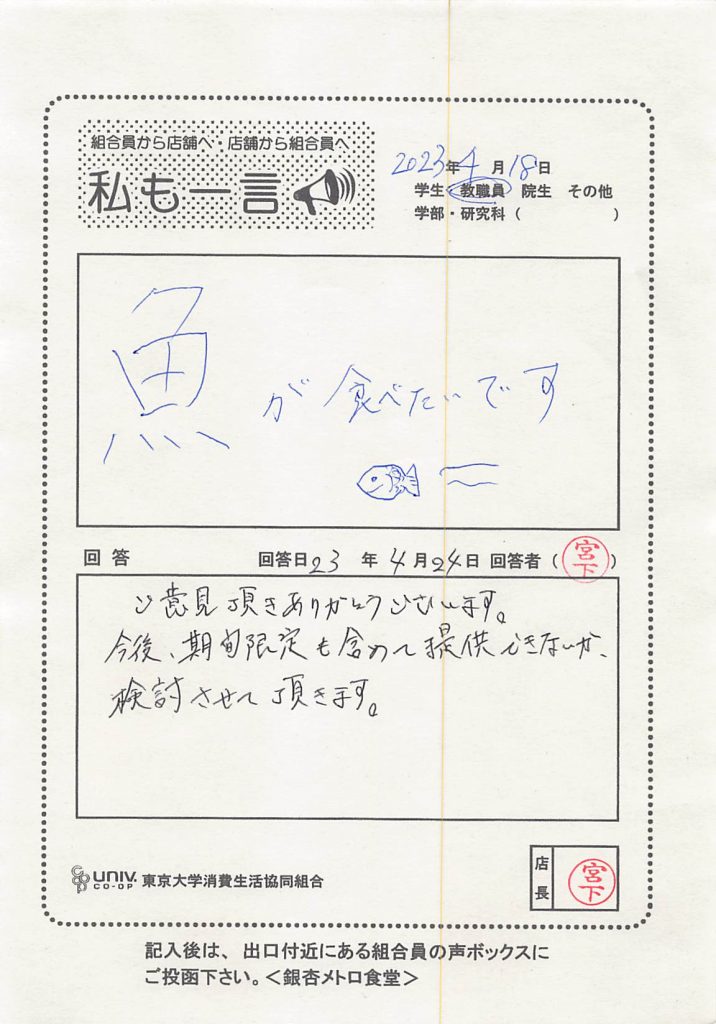 組合員から店舗へ・店舗から組合員へ
私も一言
2023年4月18日
学生・教職員 院生 その他
学部・研究科( )
魚が食べたいです
回答 回答日23年4月24日 回答者(宮下)
ご意見頂きありがとうございます。
今後、期間限定も含めて提供できないか、
検討させて頂きます。
UNIV. CO-OP 東京大学消費生活協同組合
店長 宮下
記入後は、出口付近にある組合員の声ボックスに
ご投函下さい。<銀杏メトロ食堂>